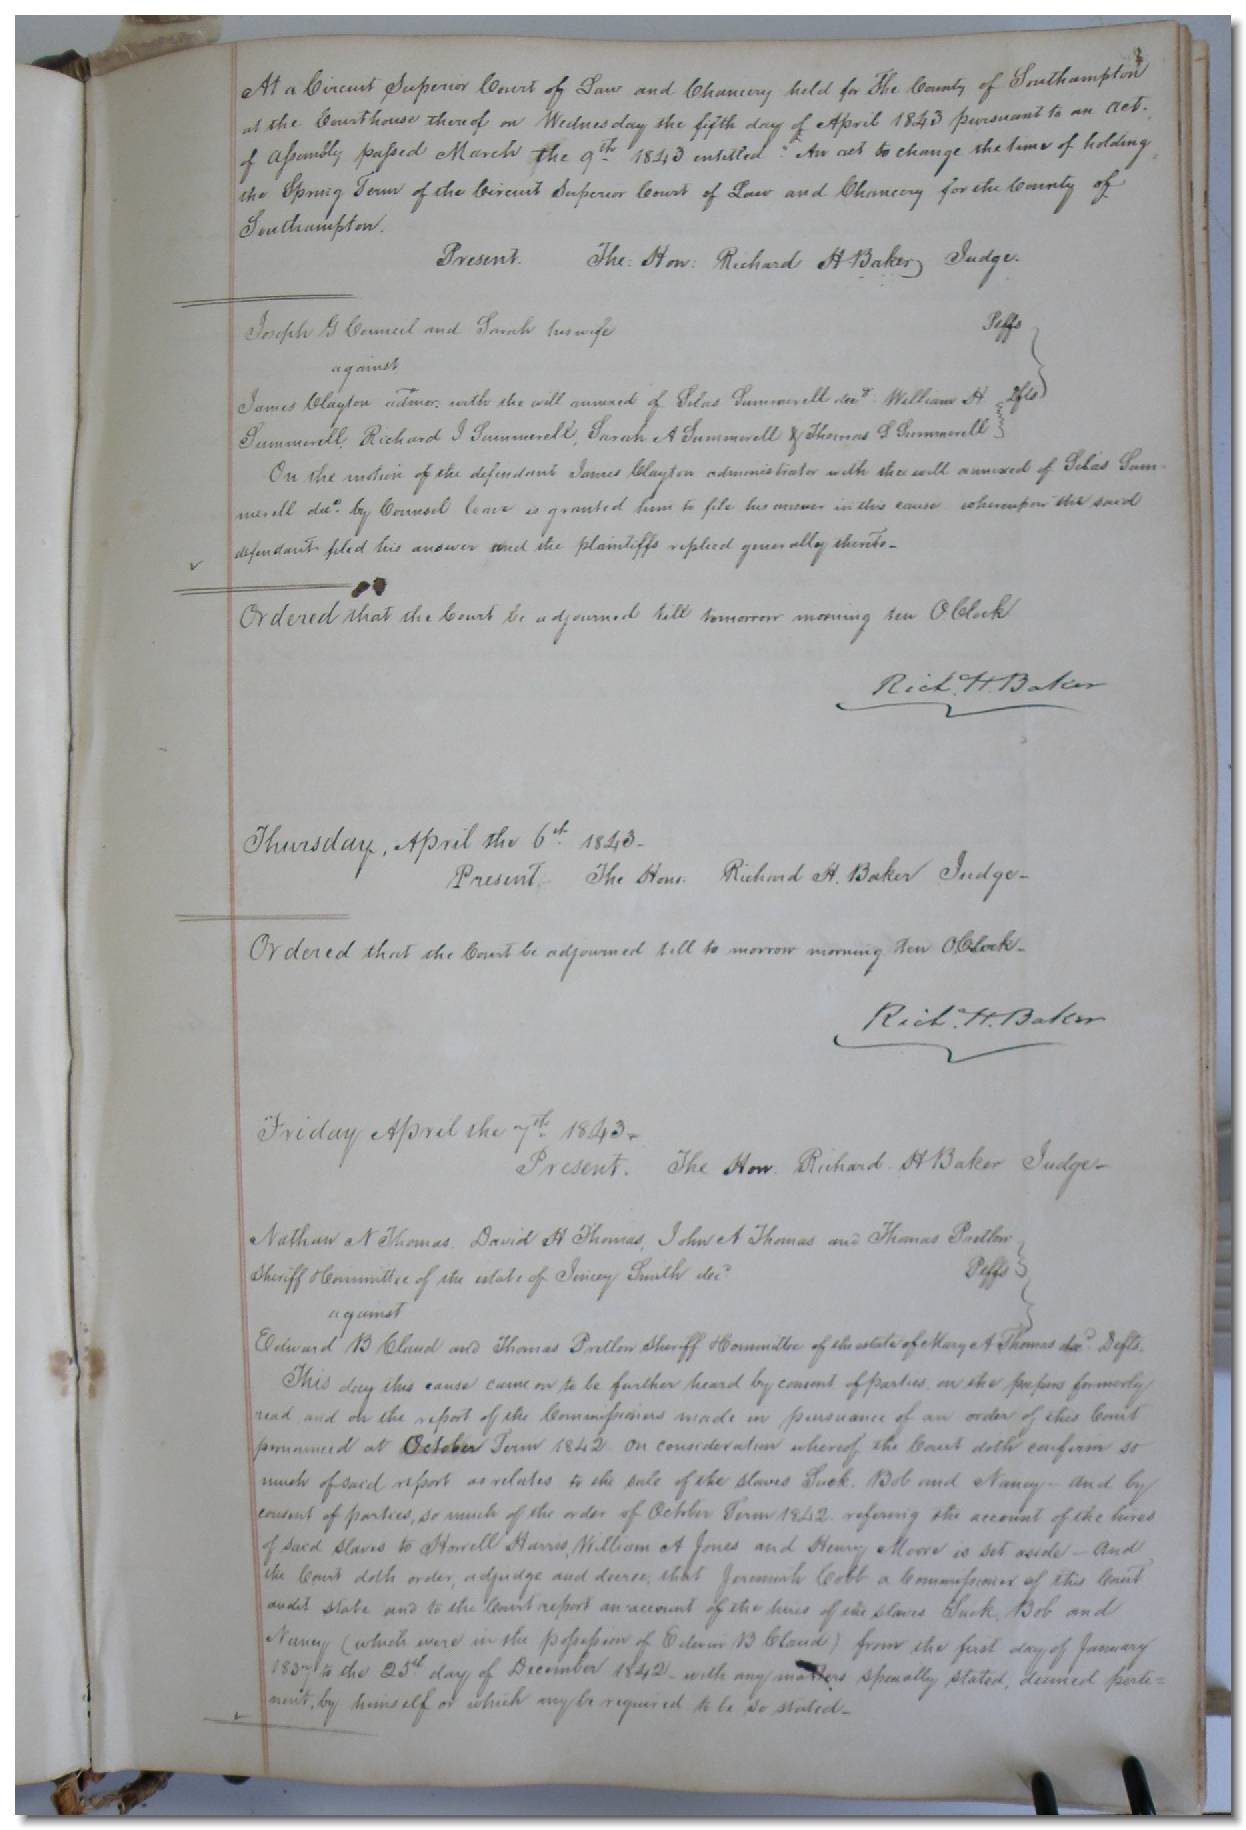 At a Circuit Superior Court of Law and Chancery held for The County of Southampton
at the Courthouse thereof on Wednesday the fifth day of April 1843 pursuant to an act.
of Assembly passed March the 9th 1843 entitled "An act to change the time of holding
the Spring Term of the Circuit Superior Court of Law and Chancery for the County of
Southampton.
Present. The: Hon: Richard H Baker Judge.
Joseph G Council and Sarah his wife Plffs
against
James Clayton admor. with the will annexed of Silas Summerell decd William H Dfts
Summerell, Richard J Summerell, Sarah A Summerell & Thomas S Summerell
On the motion of the defendant James Clayton administrator with the will annexed of Silas Sum-
merell decd. by Counsel leave is granted him to file his answer in this cause whereupon the said
defendant filed his answer and the plaintiffs replied generally thereto-
Ordered that the Court be adjourned till tomorrow morning ten O.Clock
Rich. H. Baker
Thursday, April the 6th 1843-
Present. The Hon: Richard H. Baker Judge-
Ordered that the Court be adjourned till to morrow morning ten OClock-
Rich. H. Baker
Friday April the 7th 1843-
Present. The Hon. Richard H Baker Judge-
Nathan N Thomas, David H Thomas, John A Thomas and Thomas Pretlow
Sheriff Committee of the estate of Jincey Smith decd Plffs
against
Edward B Claud and Thomas Pretlow Sheriff Committee of the estate of Mary A Thomas decd Defts.
This day this cause came on to be further heard by consent of parties, on the papers formerly
read and on the report of the Commissioners made in pursuance of an order of this Court
pronounced at October Term 1842 on consideration whereof the Court doth confirm so
much of said report as relates to the sale of the slaves Suck, Bob and Nancy- and by
consent of parties, so much of the order of October Term 1842 refering the account of the hires
of said slaves to Howell Harris, William A Jones and Henry Moore is set aside- And
the Court doth order, adjudge and decree, that Jeremiah Cobb a Commissioner of this Court
audit state and to the Court report an account of the hires of the slaves Suck, Bob and
Nancy (which were in the possession of Edwin B Claud) from the first day of January
1837 to the 25th day of December 1842- with any matters specially stated, deemed perti=
nent, by himself or which may be required to be so stated-